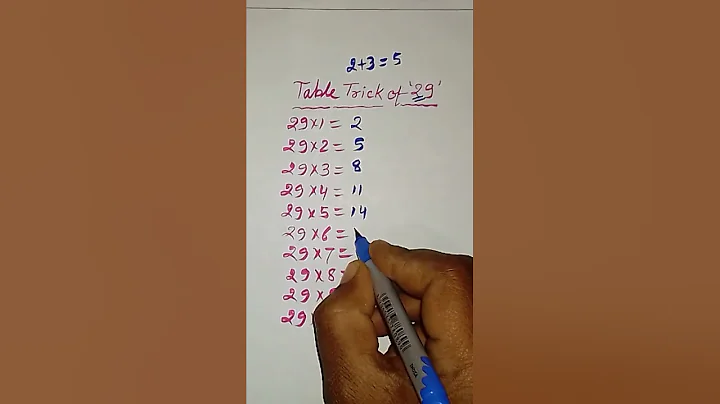 2+3=5
Table Trick of '29'
29×1= 2
29×2= 5
29×3= 8
29×4= 11
29×5= 14
29×6=
29×7=
29×8=
29×
29